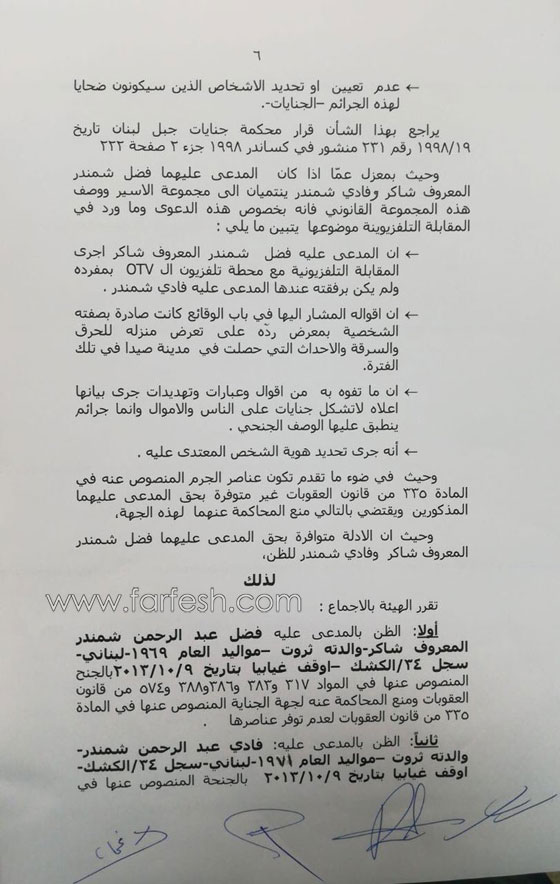 ٦
← عدم تعيين او تحديد الاشخاص الذين سيكونون ضحايا
لهذه الجرائم –الجنايات-.
يراجع بهذا الشأن قرار محكمة جنايات جبل لبنان تاريخ
١٩٩٨/١٩ رقم ٢٣١ منشور في كساندر ١٩٩٨ جزء ٢ صفحة ٢٢٢
وحيث بمعزل عمّا اذا كان المدعى عليهما فضل شمندر
المعروف شاكر وفادي شمندر ينتميان الى مجموعة الاسير ووصف
هذه المجموعة القانوني فانه بخصوص هذه الدعوى وما ورد في
المقابلة التلفزيوينة موضوعها يتبين ما يلي :
← ان المدعى عليه فضل شمندر المعروف شاكر اجرى
المقابلة التلفزيونية مع محطة تلفزيون ال OTV بمفرده
ولم يكن برفقته عندها المدعى عليه فادي شمندر .
← ان اقواله المشار اليها في باب الوقائع كانت صادرة بصفته
الشخصية بمعرض ردّه على تعرض منزله للحرق
والسرقة والاحداث التي حصلت في مدينة صيدا في تلك
الفترة.
← ان ما تفوه به من اقوال وعبارات وتهديدات جرى بيانها
اعلاه لاتشكل جنايات على الناس والاموال وانما جرائم
ينطبق عليها الوصف الجنحي .
← أنه جرى تحديد هوية الشخص المعتدى عليه .
وحيث في ضوء ما تقدم تكون عناصر الجرم المنصوص عنه في
المادة ٣٣٥ من قانون العقوبات غير متوفرة بحق المدعى عليهما
المذكورين ويقتضي بالتالي منع المحاكمة عنهما لهذه الجهة،
وحيث ان الادلة متوافرة بحق المدعى عليهما فضل شمندر
المعروف شاكر وفادي شمندر للظن،
لذلك
www.farfesh.com
تقرر الهيئة بالاجماع :
أولا: الظن بالمدعى عليه فضل عبد الرحمن شمندر
المعروف شاكر-والدته ثروت –مواليد العام ١٩٦٩-لبناني-
سجل ٣٤/الكشك –اوقف غيابيا بتاريخ ٢٠١٣/١٠/٩بالجنح
المنصوص عنها في المواد ٣١٧ و٣٨٣ و٣٨٦و٣٨٨ و٥٧٤ من قانون
العقوبات ومنع المحاكمة عنه لجهة الجناية المنصوص عنها في المادة
٣٣٥ من قانون العقوبات لعدم توفر عناصرها .
ثانياً: الظن بالمدعى عليه: فادي عبد الرحمن شمندر-
والدته ثروت –مواليد العام ١٩٧١-لبناني-سجل ٣٤/الكشك-
اوقف غيابيا بتاريخ ٢٠١٣/١٠/٩ بالجنحة المنصوص عنها في